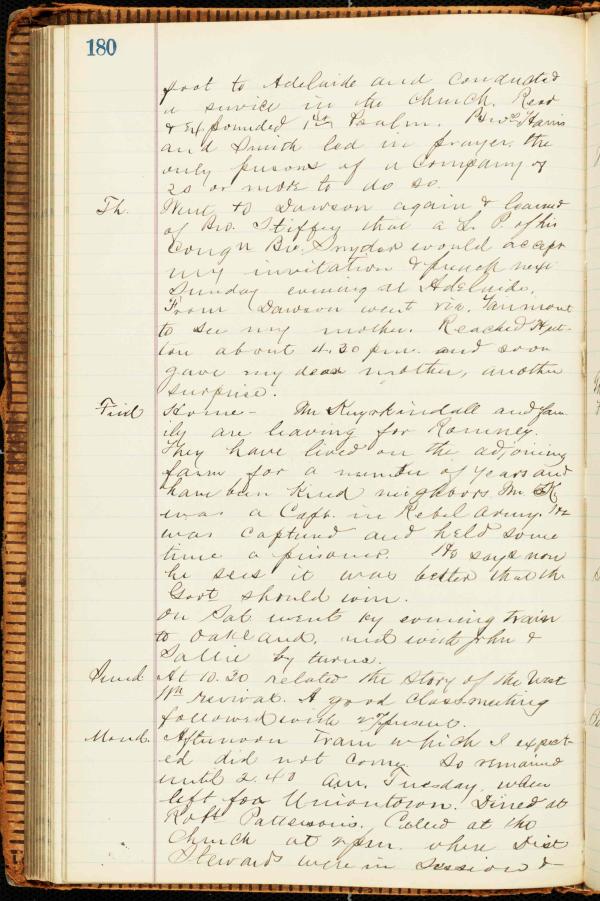 180
foot to Adelaide and conducted
a service in the church. Read
& Expounded 1st Psalm. Harris
and Smith led in prayer, the
only persons of a company of
20 or more to do so.
Th. Went to Dawson again & learned
of Bro. Stiffey that a L. P. of his
Cong'n Bro. Snyder would accept
my invitation & preach next
Sunday evening at Adelaide.
From Dawson went via. Fairmont
to see my mother. Reached
about 4.30 p.m. and soon
gave my dear mother, another
surprise.
Frid Home - Mr Kuyrkindall and fam
ily are leaving for Romney.
They have lived on the adjoining
farm for a number of years and
have been kind neighbors. Mr K.
was a Capt. in Rebel Army. He
was captured and held some
time a prisoner. He says now
he sees it was better that the
Govt should win.
On Sat. went by evening train
to Oakland. with John &
Sallie by turns.
Sund At 10.30 related the story of the West
revival. A good Class meeting
followed with 27 present.
Mond. Afternoon train which I expect-
ed did not come. So remained
until 2.40 am. Tuesday, when
left for Uniontown. Dined at
Robt Pattersons. Called at the
Church at 2 p.m. where Dist
Stewards were in session &